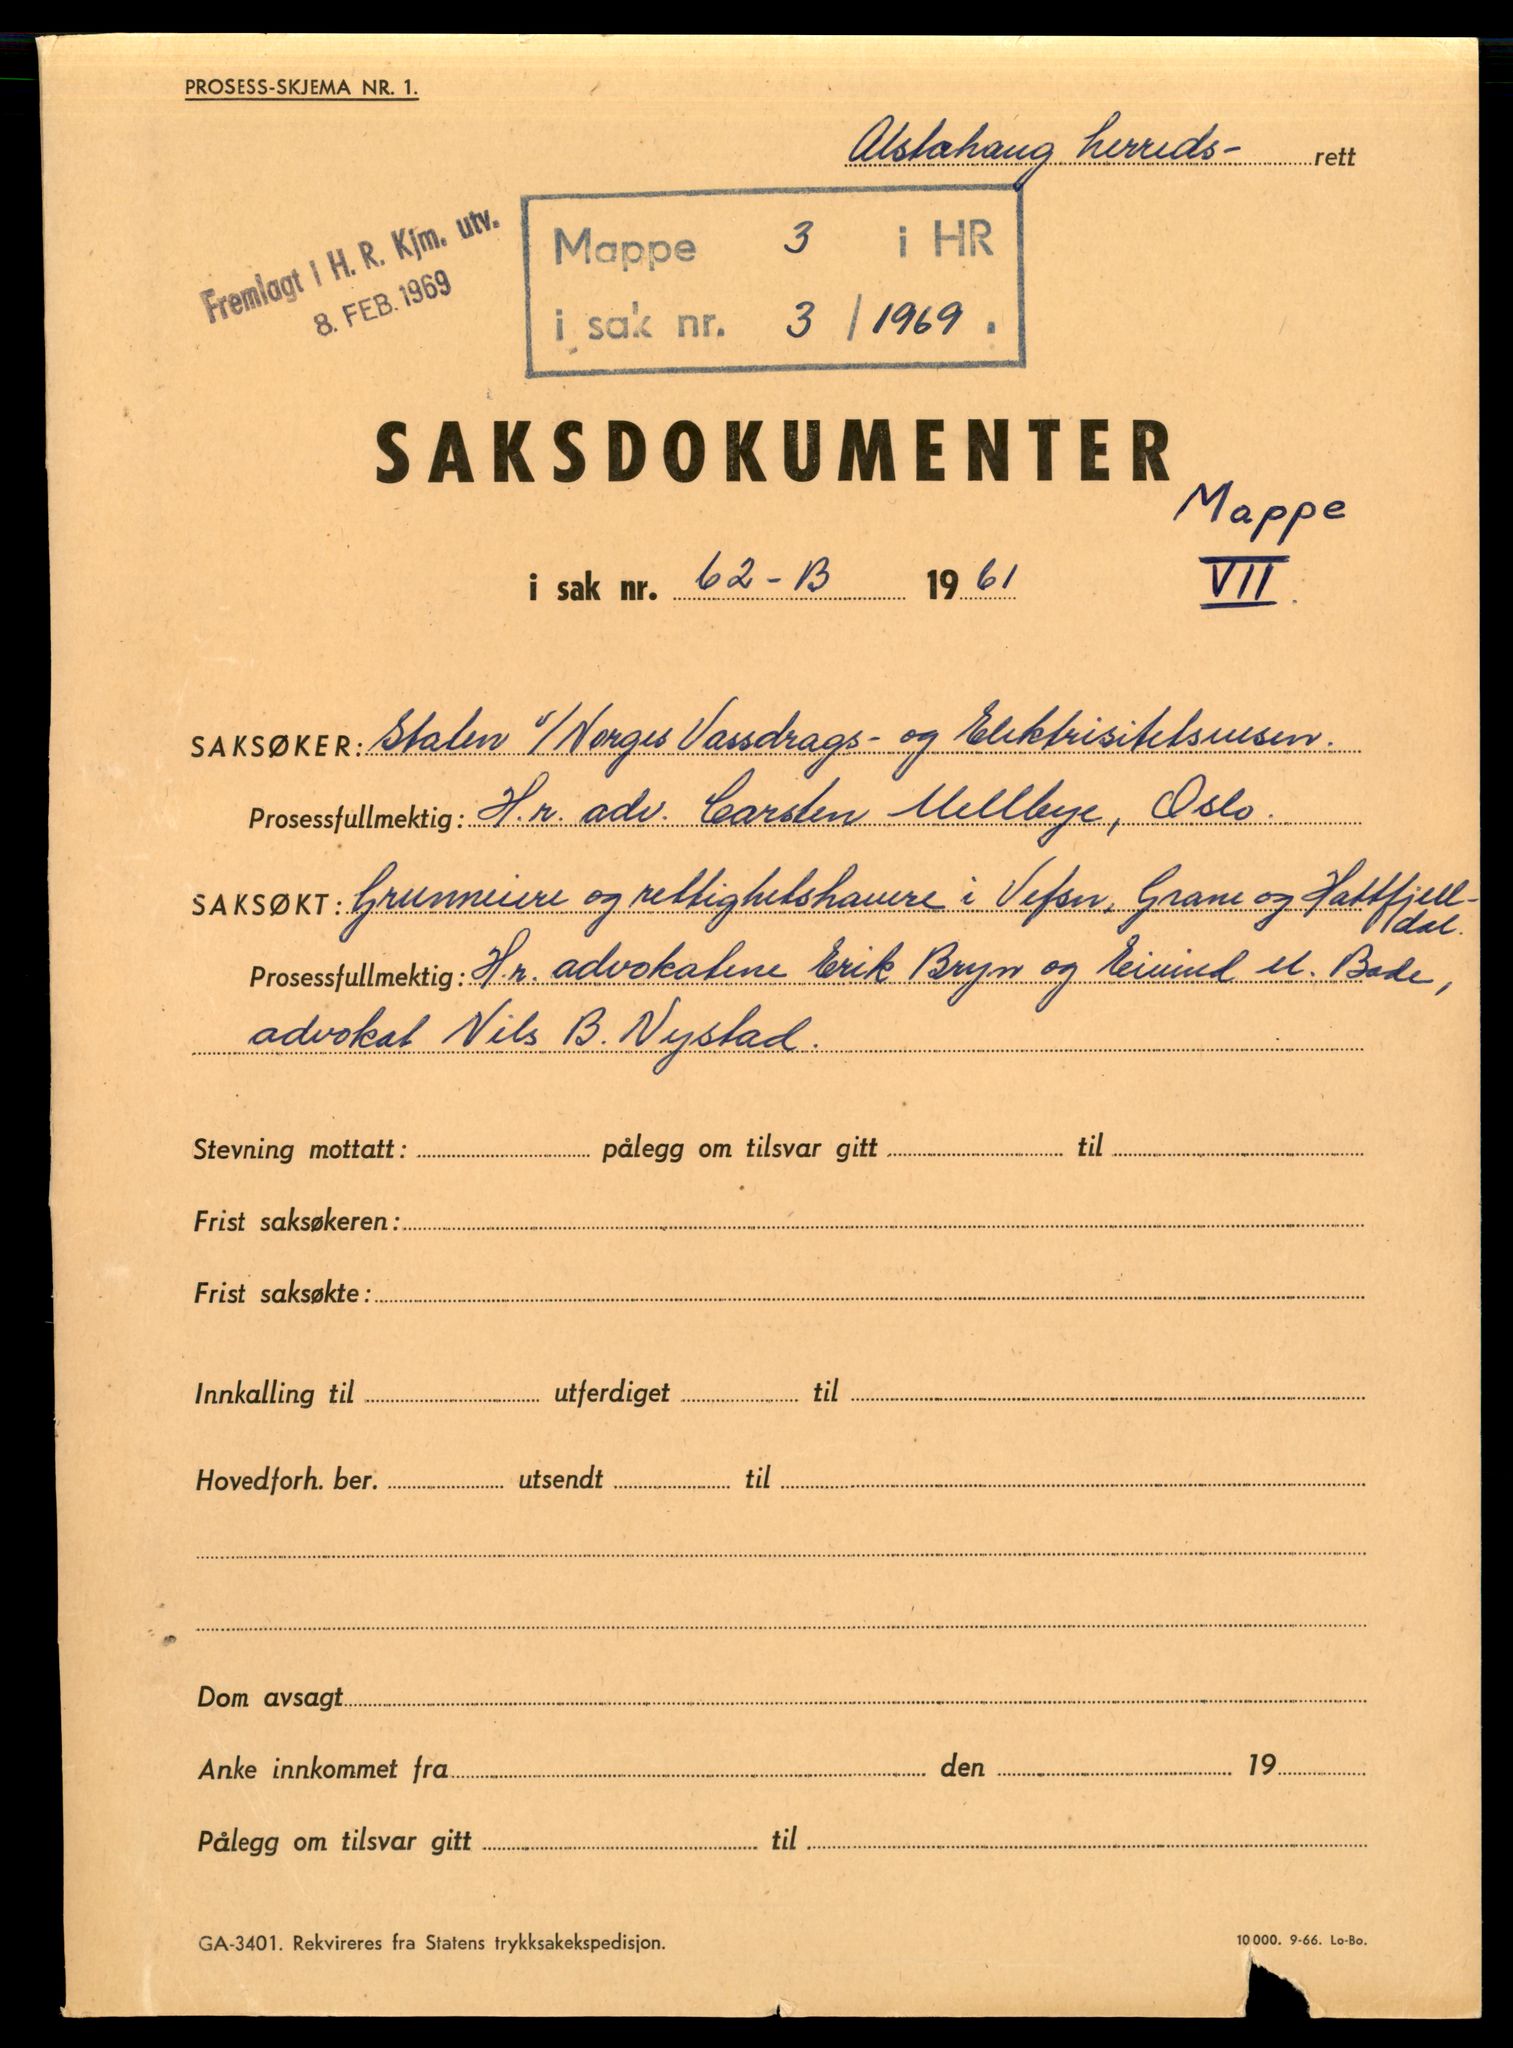 PROSESS-SKJEMA NR. 1.
Alstahaug herreds- rett
Fremlagt i H. R. Kjm. utv.
8. FEB. 1969
Mappe 3 i HR
i sak nr. 3 / 1969.
SAKSDOKUMENTER
Mappe
VII
i sak nr. 62-B 19 61
SAKSØKER: Staten v/Norges Vassdrags- og Elektrisitetsvesen.
Prosessfullmektig: H.r. adv. Carsten Mellbye, Oslo.
SAKSØKT: Grunneiere og rettighetshavere i Vefsn, Grane og Hattfjell-
dal.
Prosessfullmektig: H.r. advokatene Erik Bryn og Eivind M. Bade,
advokat Nils B. Nystad.
Stevning mottatt: pålegg om tilsvar gitt til
Frist saksøkeren:
Frist saksøkte:
Innkalling til utferdiget til
Hovedforh. ber. utsendt til
Dom avsagt
Anke innkommet fra den 19
Pålegg om tilsvar gitt til
GA-3401. Rekvireres fra Statens trykksakekspedisjon.
10 000. 9-66. Lo-Bo.